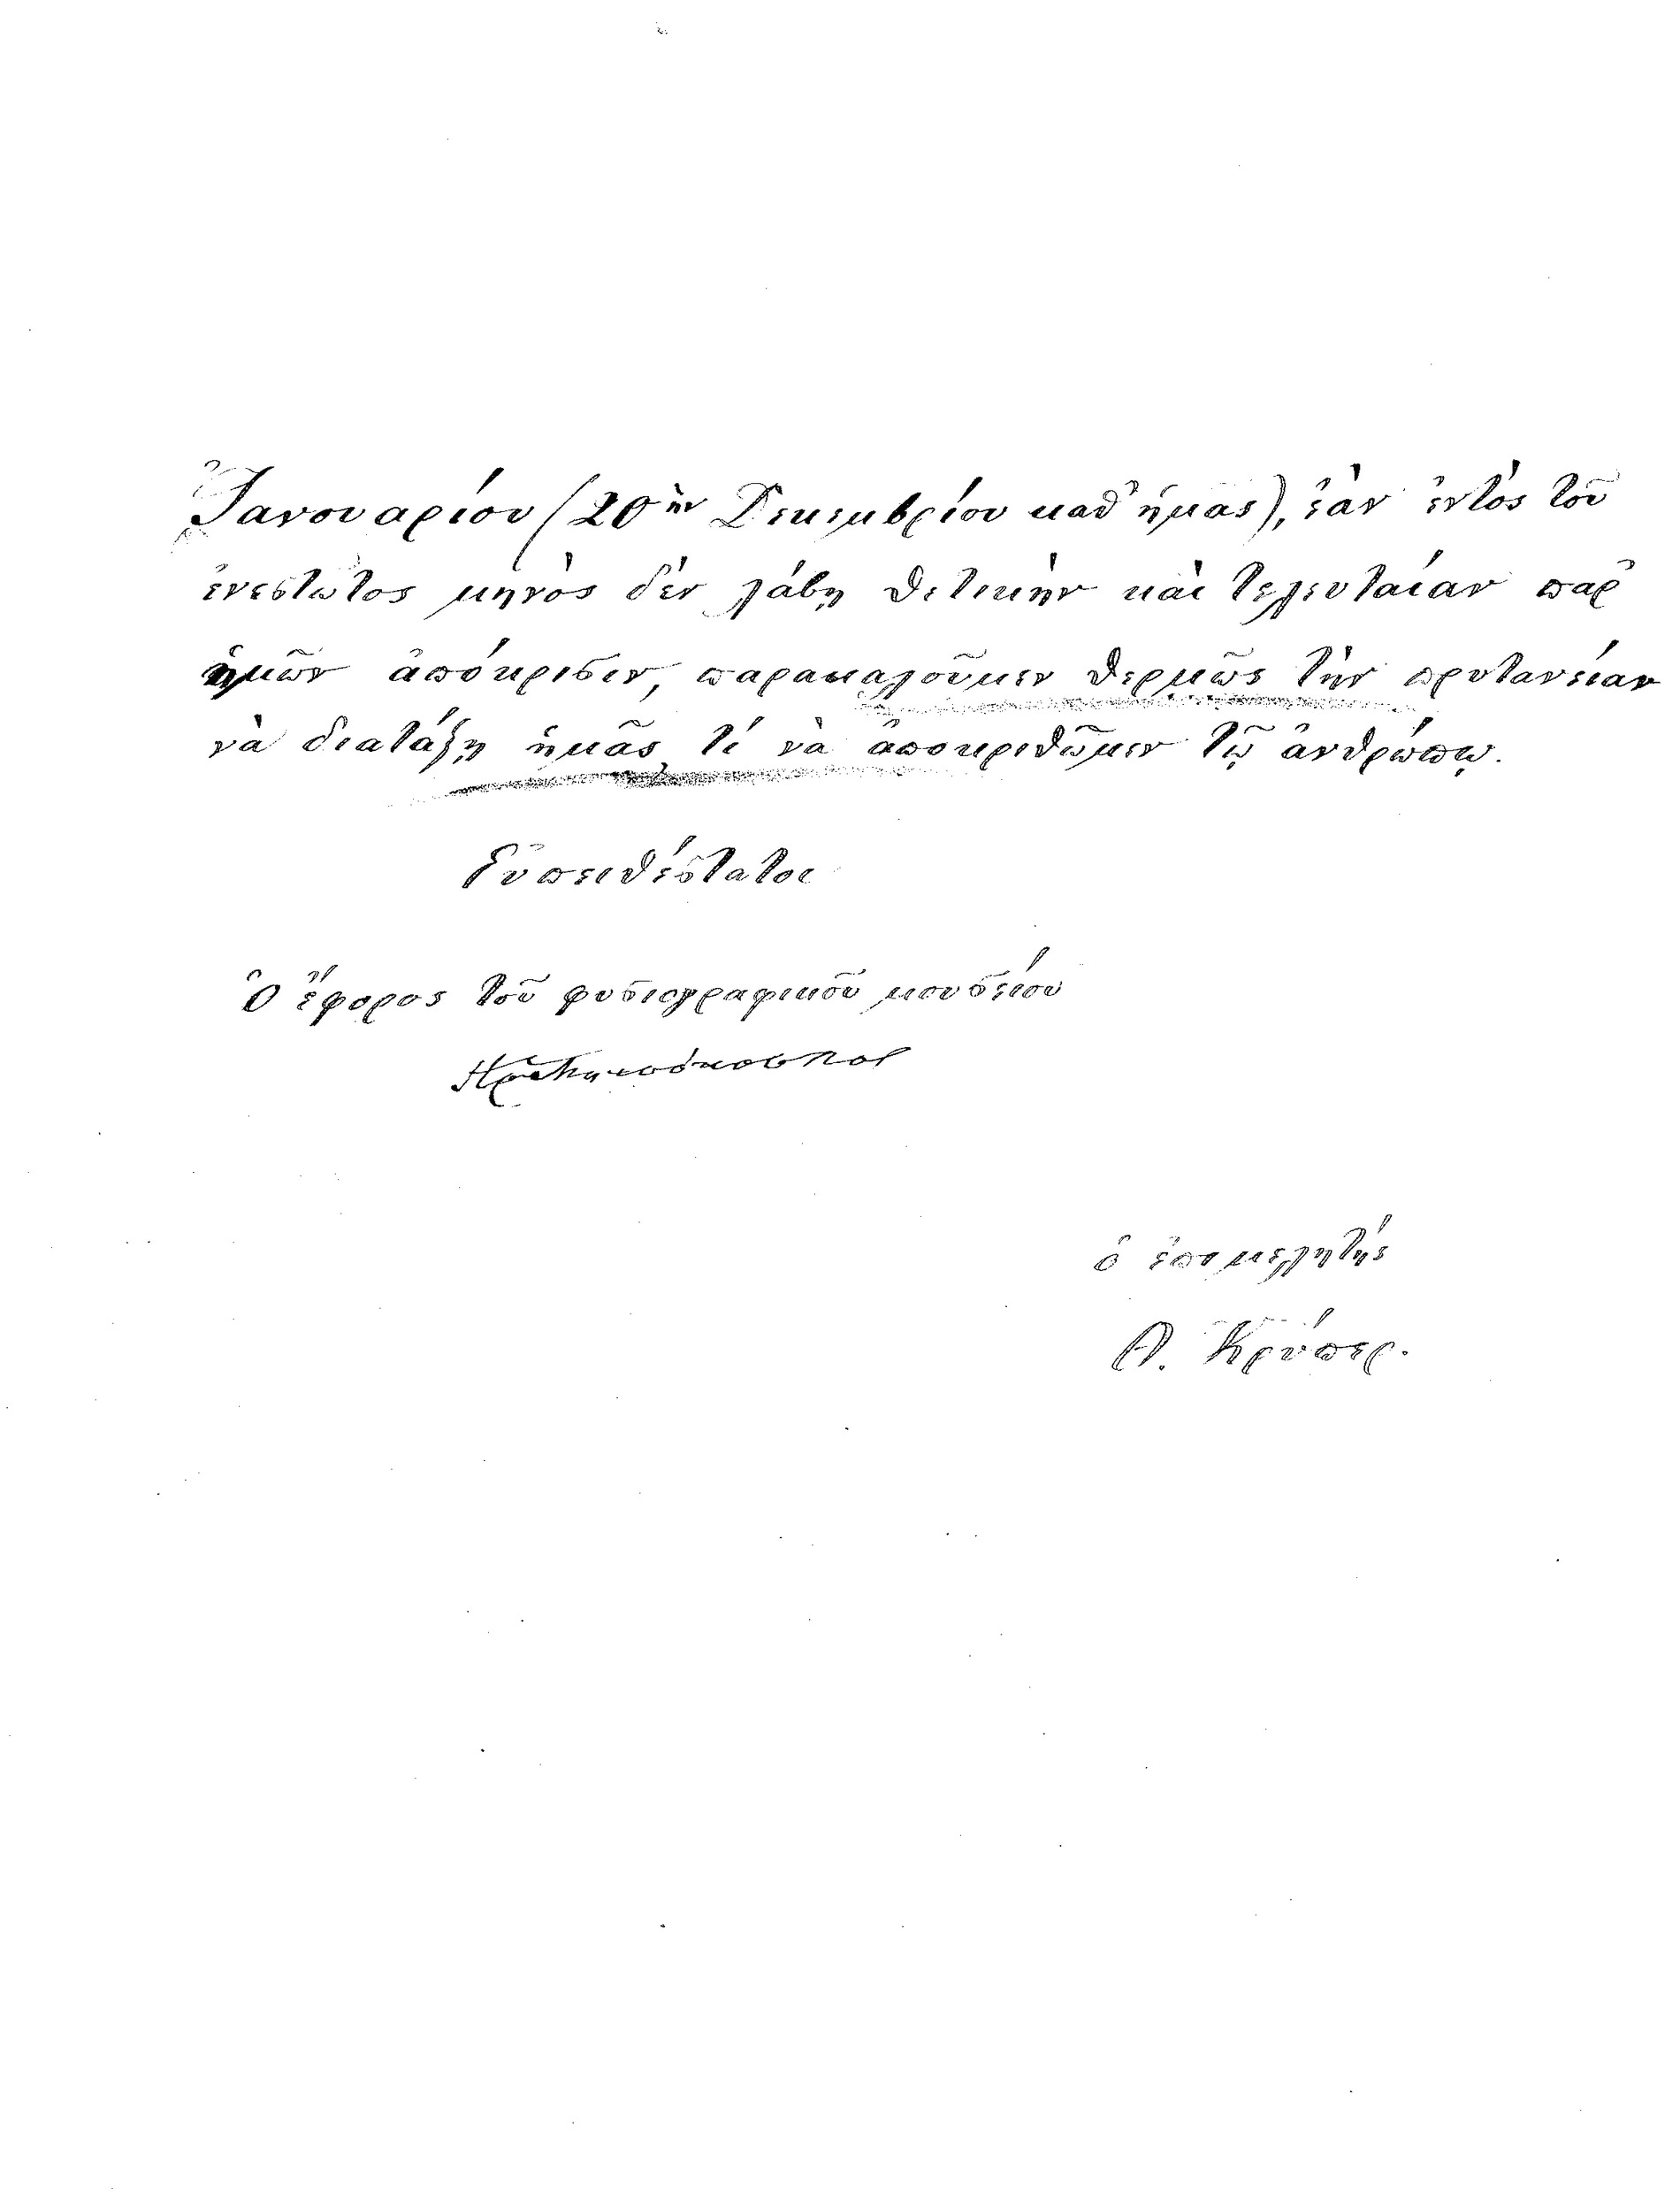 Ἰανουαρίου (20ὴν Δεκεμβρίου καθ' ἡμᾶς), ἐὰν ἐντὸς τοῦ
ἐνεστῶτος μηνὸς δὲν λάβῃ θετικὴν καὶ τελευταίαν παρ'
ἡμῶν ἀπόκρισιν, παρακαλοῦμεν θερμῶς τὴν πρυτανείαν
νὰ διατάξῃ ἡμᾶς, τί νὰ ἀποκριθῶμεν τῷ ἀνθρώπῳ.
Εὐπειθέστατοι
Ὁ ἔφορος τοῦ φυσιογραφικοῦ μουσείου
ὁ ἐπιμελητής
Θ. Κρύπερ.